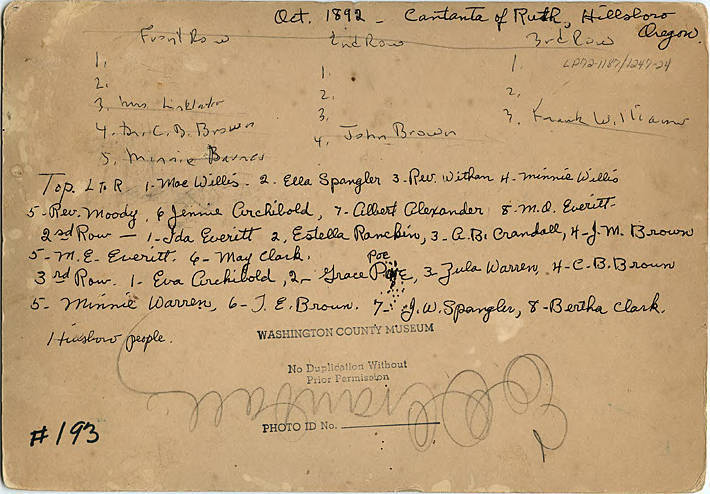 Oct. 1892 - Cantanta of Ruth, Hillsboro
Oregon.
Front Row 2nd Row 3rd Row
1. 1. 1. LP72-1187/1247-24
2. 2. 2.
3. Mrs Linklater 3. 3. Frank Williams
4. Dr. C. B. Brown 4. John Brown
5. Minnie Barnes
Top. L to R 1-Mae Willis. 2. Ella Spangler 3-Rev. Withan 4-Minnie Willis
5-Rev. Moody, 6 Jennie Archibold, 7-Albert Alexander 8-M.O. Everitt
2nd Row — 1-Ida Everitt 2, Estella Ranckin, 3-A.B. Crandall, 4-J.M. Brown
5-M.E. Everitt. 6-May Clark.
Poe
3rd Row. 1-Eva Archibold, 2-Grace, 3-Zula Warren, 4-C.B. Brown
5-Minnie Warren, 6-T.E. Brown. 7-J.W. Spangler, 8-Bertha Clark.
Hillsboro people.
WASHINGTON COUNTY MUSEUM
No Duplication Without
Prior Permission
Crandall
PHOTO ID No.
#193